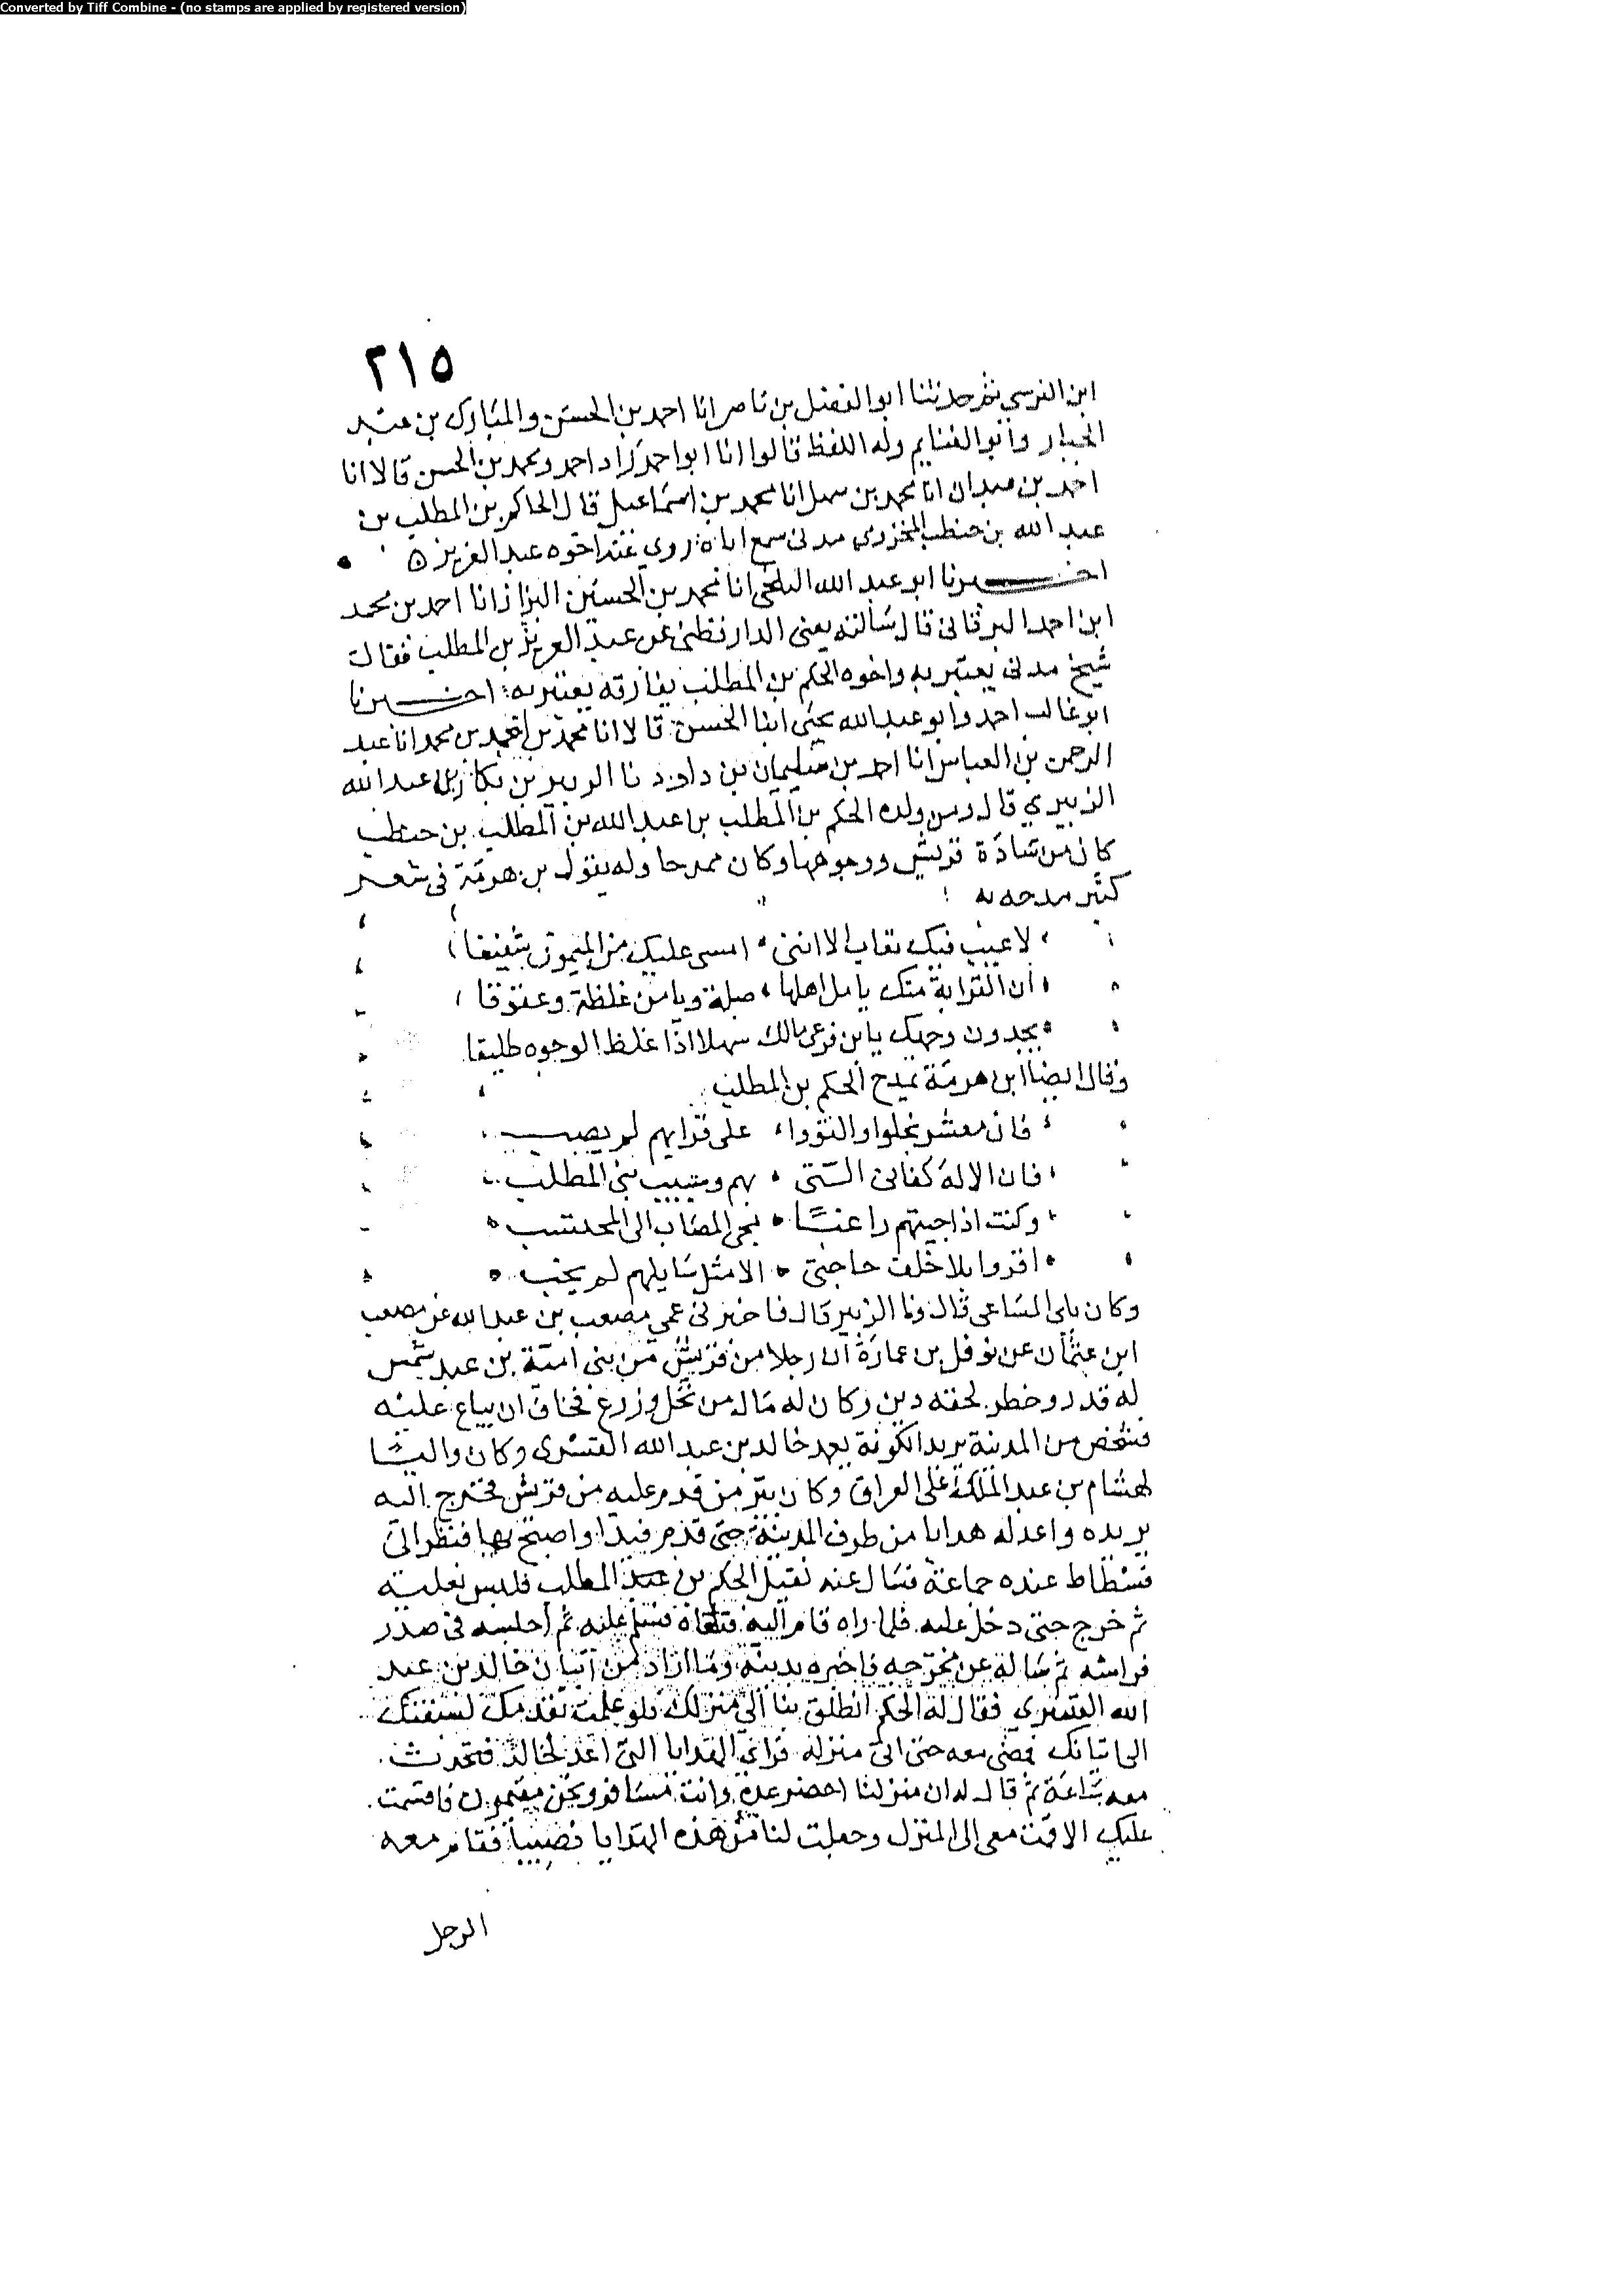 Converted by Tiff Combine - (no stamps are applied by registered version)
٢١٥
ابن النرسي ثم حدثنا ابو الفضل بن ناصر انا احمد بن الحسن والمبارك بن عبد
الجبار وابو الغنايم وله اللفظ قالوا انا ابو احمد زاد احمد ومحمد بن الحسن قالا انا
احمد بن عبدان انا محمد بن سهل انا محمد بن اسماعيل قال الحاكم بن المطلب بن
عبد الله بن حنطب المخزومي مدنى سمع اباه روي عنه اخوه عبد العزيز ه
اخبرنا ابو عبد الله البلخى انا محمد بن الحسين البزاز انا احمد بن محمد
ابن احمد البرقانى قال سالته يعنى الدارقطنى عن عبد العزيز بن المطلب فقال
شيخ مدنى يعتبر به واخوه الحكم بن المطلب يقاربه يعتبر به اخبرنا
ابو غالب احمد وابو عبد الله يحيى ابنا الحسن قالا انا محمد بن احمد بن محمد انا عبد
الرحمن بن العباس انا احمد بن سليمان بن داود نا الزبير بن بكار بن عبد الله
الزبيري قال ومن ولده الحكم بن المطلب بن عبد الله بن المطلب بن حنطب
كان من سادة قريش ووجوهها وكان ممدحا وله يقول بن هرمة فى شعر
كثير مدحه به
لا عيب فيك يعاب الا اننى امسى عليك من المنون شفيقا
ان القرابة منك يامل اهلها صلة ويامن غلظة وعقوقا
يجدون وجهك يابن فرعى مالك سهلا اذا غلظ الوجوه طليقا
وقال ايضا ابن هرمة يمدح الحكم بن المطلب
فان معشر بخلوا والتووا على قرابهم لم يصب
فان الاله كفانى التى بهم وسيب بنى المطلب
وكنت اذا جيتهم راغبا يحى المصاب الى المحتسب
اقروا بلا خلف حاجتى الا مثل سايلهم لم يخب
وكان يلى المساعى قال ونا الزبير قال فاخبرنى عمى مصعب بن عبد الله عن مصعب
ابن عثمان عن نوفل بن عمارة ان رجلا من قريش من بنى امية بن عبد شمس
له قدر وخطر لحقه دين وكان له مال من نخل وزرع فخاف ان يباع عليه
فشخص من المدينة يريد الكوفة يعمد خالد بن عبد الله القسرى وكان واليا
لهشام بن عبد الملك على العراق وكان يبر من قدم عليه من قريش فخرج اليه
يريده واعد له هدايا من طرف المدينة حتى قدم فيدا واصبح بها فنظر الى
فسطاط عنده جماعة فسال عنه فقيل الحكم بن المطلب فلبس نعليه
ثم خرج حتى دخل عليه فلما راه قام اليه فتلقاه فسلم عليه ثم اجلسه فى صدر
فراشه ثم ساله عن مخرجه فاخبره بدينه وما اراد من اتيان خالد بن عبد
الله القسري فقال له الحكم انطلق بنا الى منزلك فلو علمت بقدمك لسبقتك
الى اتيانك فمضى معه حتى اتى منزله فراى الهدايا التى اعد لخالد فتحدث
معه ساعة ثم قال له ان منزلنا احضر عدة وانت مسافر ونحن مقيمون فاقسمت
عليك الا قمت معى الى المنزل وجعلت لنا من هذه الهدايا نصيبا فقام معه
الرجل